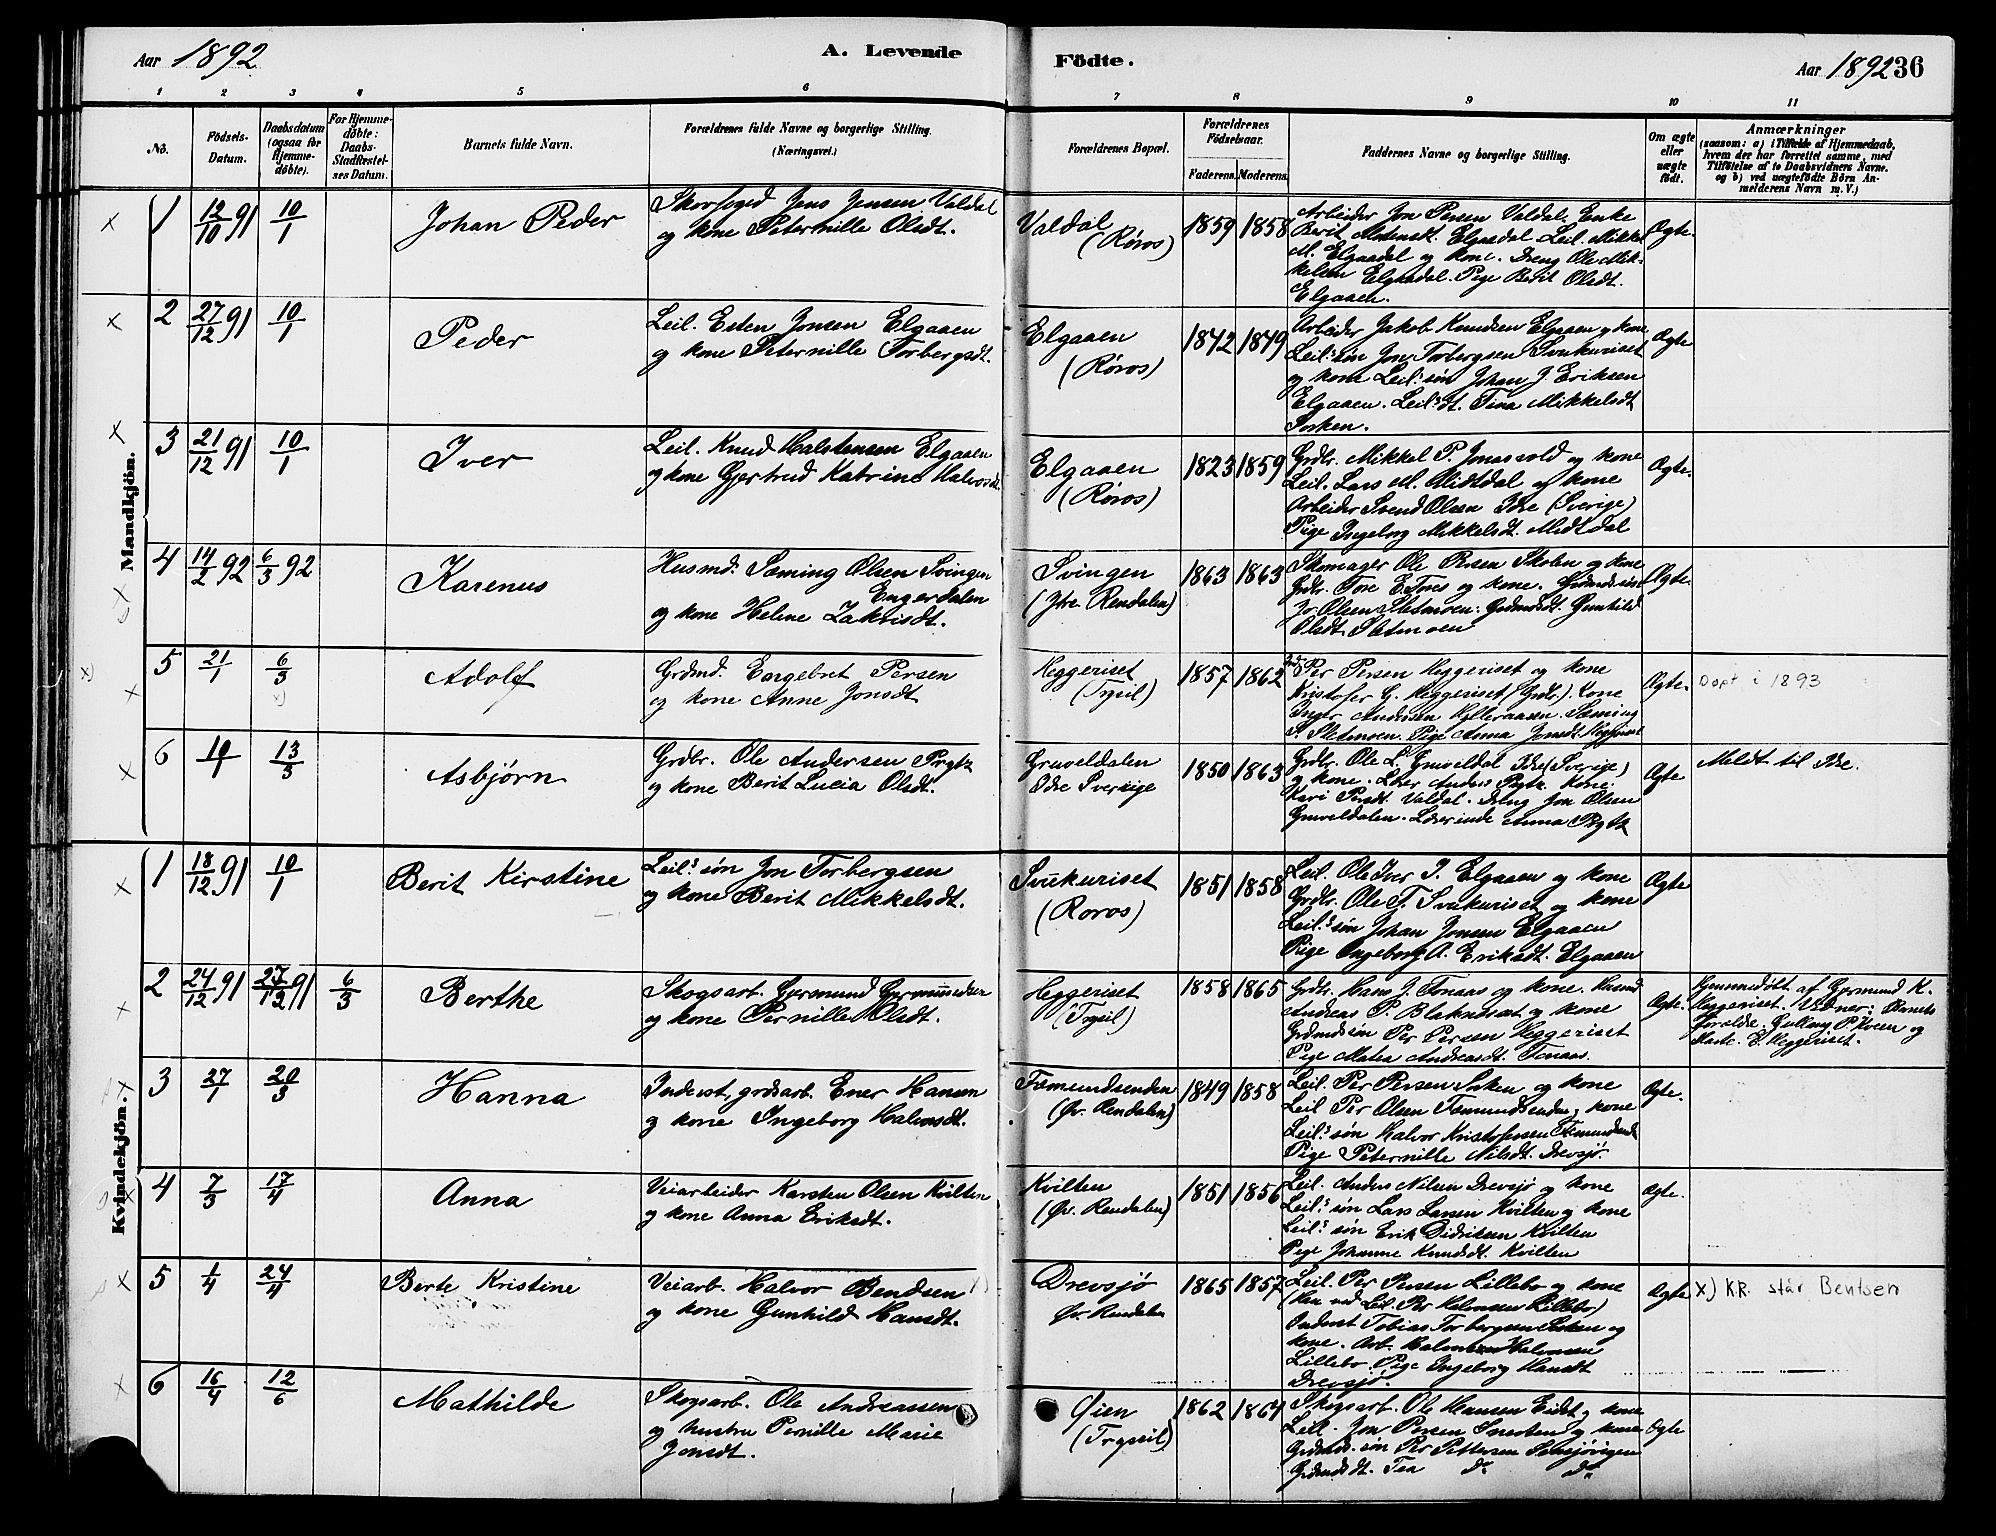 Aar 1892
A. Levende
Födte.
Aar 1892 36
1 2 3 4 5 6 7 8 9 10 11
No.
Födsels-Datum.
Daabsdatum (ogsaa for Hjemme-døbte).
For Hjemme-døbte: Daabs-Stadfæstel-ses Datum.
Barnets fulde Navn.
Forældrenes fulde Navne og borgerlige Stilling.
(Næringsvei.)
Forældrenes Bopæl.
Forældrenes Födselsaar.
Faderens. Moderens.
Faddernes Navne og borgerlige Stilling.
Om ægte eller uægte födt.
Anmærkninger
(saasom: a) i Tilfælde af Hjemmedaab,
hvem der har forrettet samme, med
Tilföielse af to Daabsvidners Navne.
og b) ved uægtefödte Börn An-
melderens Navn m. V.)
Mandkjön.
1 12/10 91 10/1 Johan Peder
Skovfoged Jens Jensen Valdal
og kone Peternille Olsdt.
Valdal
(Røros)
1859 1858
Arbeider Jon Persen Valdal. Enke
Berit Mortensdt. Elgaadal. Leil. Mikkel
M. Elgaadal og kone. Dreng Ole Mik-
kelsen Elgaadal. Pige Berit Olsdt.
Elgaaen.
Ægte.
2 27/12 91 10/1 Peder
Leil. Esten Jonsen Elgaaen
og kone Peternille Torbergsdt.
Elgaaen
(Røros)
1842 1849
Arbeider Jakob Knudsen Elgaaen og kone
Leil.s søn Jon Torbergsen Svukuriset
og kone Leil.s søn Johan J. Eriksen
Elgaaen. Leil.s dt. Tina Mikkelsdt
Sorken.
Ægte
3 21/12 91 10/1 Iver
Leil. Knud Halstensen Elgaaen
og kone Gjertrud Katrine Halvorsdt.
Elgaaen
(Røros)
1823 1859
Grdbr. Mikkel P. Jonasvold og kone
Leil. Lars M. Midtdal og kone
Arbeider Svend Olsen Idre (Sverige)
Pige Ingeborg Mikkelsdt. Midtdal
Ægte.
4 14/2 92 6/3 92 Karenus
Husmd. Sæming Olsen Svingen
Engerdalen
og kone Helene Zakrisdt.
Svingen
(Ytre Rendalen)
1863 1863
Skomager Ole Persen og kone
Grdbr. Tore E. Tores og kone. Grdmds.søn
Jo Olsen Sletmoen. Grdmdsdt. Gunhild
Olsdt. Sletmoen
Ægte
5 21/1 6/3 Adolf
Grdmd. Engebret Persen
og kone Anne Jonsdt
Heggeriset
(Trysil)
1857 1862
Grdb. Per Persen Heggeriset og kone
Kristofer G. Heggeriset (Grdbr.). Kone
Inger Andersen Hylleraasen. Sæming
S. Sletmoen. Pige Anna Jonsdt. Heggeriset
Ægte.
Døpt i 1893
6 13/3 Asbjørn
Grdbr. Ole Andersen Prytz
og kone Berit Lucia Olsdt.
Gruveldalen
Idre Sverige
1850 1863
Grdbr. Ole L. Gruveldal Idre (Sverige)
og kone. Lærer Anders Prytz. Kone
Kari Persdt Valdal. Dreng Jon Olsen
Gruveldalen. Lærerinde Anna Prytz
Ægte
Meldt til Idre.
Kvindekjön.
1 18/12 91 10/1 Berit Kirstine
Leil.s søn Jon Torbergsen
og kone Berit Mikkelsdt.
Svukuriset
(Røros)
1851 1858
Leil. Ole Iver J. Elgaaen og kone
Grdbr. Ole T. Svukuriset og kone
Leil.s søn Johan Jonsen Elgaaen
Pige Ingeborg A. Eriksdt. Elgaaen
Ægte
2 24/12 91 27/12 91 6/3 Berthe
Skogsarb. Gjermund Gjermundsen
og kone Pernille Olsdt.
Heggeriset
(Trysil)
1858 1865
Grdbr. Hans J. Tonaas og kone. Husmd
Andreas P. Blakneset og kone
Grdmdssøn Per Persen Heggeriset
Pige Matea Andreasdt. Tonaas.
Ægte.
Hjemmedøbt af Gjermund K.
Heggeriset. Vidner: Barnets
Foraldre. Gulling P. Kveen og
E. Heggeriset.
3 27/1 20/3 Hanna
Inderst, grdsarb. Ener Hansen
og kone Ingeborg Halvorsdt.
Fæmundsenden
(Øv. Rendalen)
1849 1858
Leil. Per Persen Sorken og kone
Leil Per Olsen Fæmundsenden og kone
Leil.s søn Halvor Kristofersen Fæmundsend
Pige Peternille Nilsdt. Drevsjø.
Ægte.
4 7/3 17/4 Anna
Veiarbeider Karsten Olsen Kvilten
og kone Anna Eriksdt.
Kvilten
(Øv. Rendalen)
1851 1856
Leil. Anders Nilsen Drevsjø og kone
Leil.s søn Lars Larsen Kvilten og kone
Leil.s søn Erik Didriksen Kvilten
Pige Johanne Knudsdt. Kvilten
Ægte.
5 1/4 24/4 Berte Kristine
Veiarb. Halvor Bendsen x)
og kone Gunhild Hansdt.
Drevsjø
Øv. Rendalen
1865 1857
Leil. Per Persen Lillebo og kone
Leil. Per Halvorsen Lillebo)
Inderst Tobias Torbergsen Sorken og
kone. Arb. Halvor Halvorsen
Lillebo. Pige Ingeborg Hansdt
Drevsjø.
Ægte
x) K.R. står Bentsen
6 16/4 12/6 Mathilde
Skogsarb. Ole Andreassen
og hustru Pernille Marie
Jonsdt.
Øien
(Trysil)
1862 1864
Skogsarb. Ole Hansen Eidet og kone
Leil. Jon Persen og kone
Grdmds. søn Per Pettersen Sensjøvigen
Grdmdsdt. Tea do do
Ægte